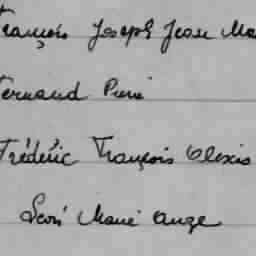 François Joseph Jean Ma
Fernand Pierre
Frédéric François Alexis
Marie Ange